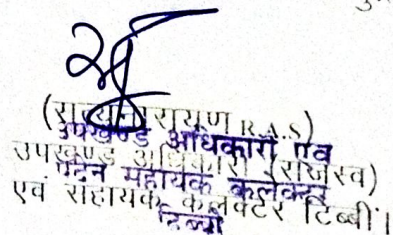 (सत्यनारायण R.A.S)
उपखण्ड अधिकारी एवं
उपखण्ड अधिकारी (राजस्व)
पदेन सहायक कलेक्टर
एवं सहायक कलेक्टर टिब्बी।
टिब्बी